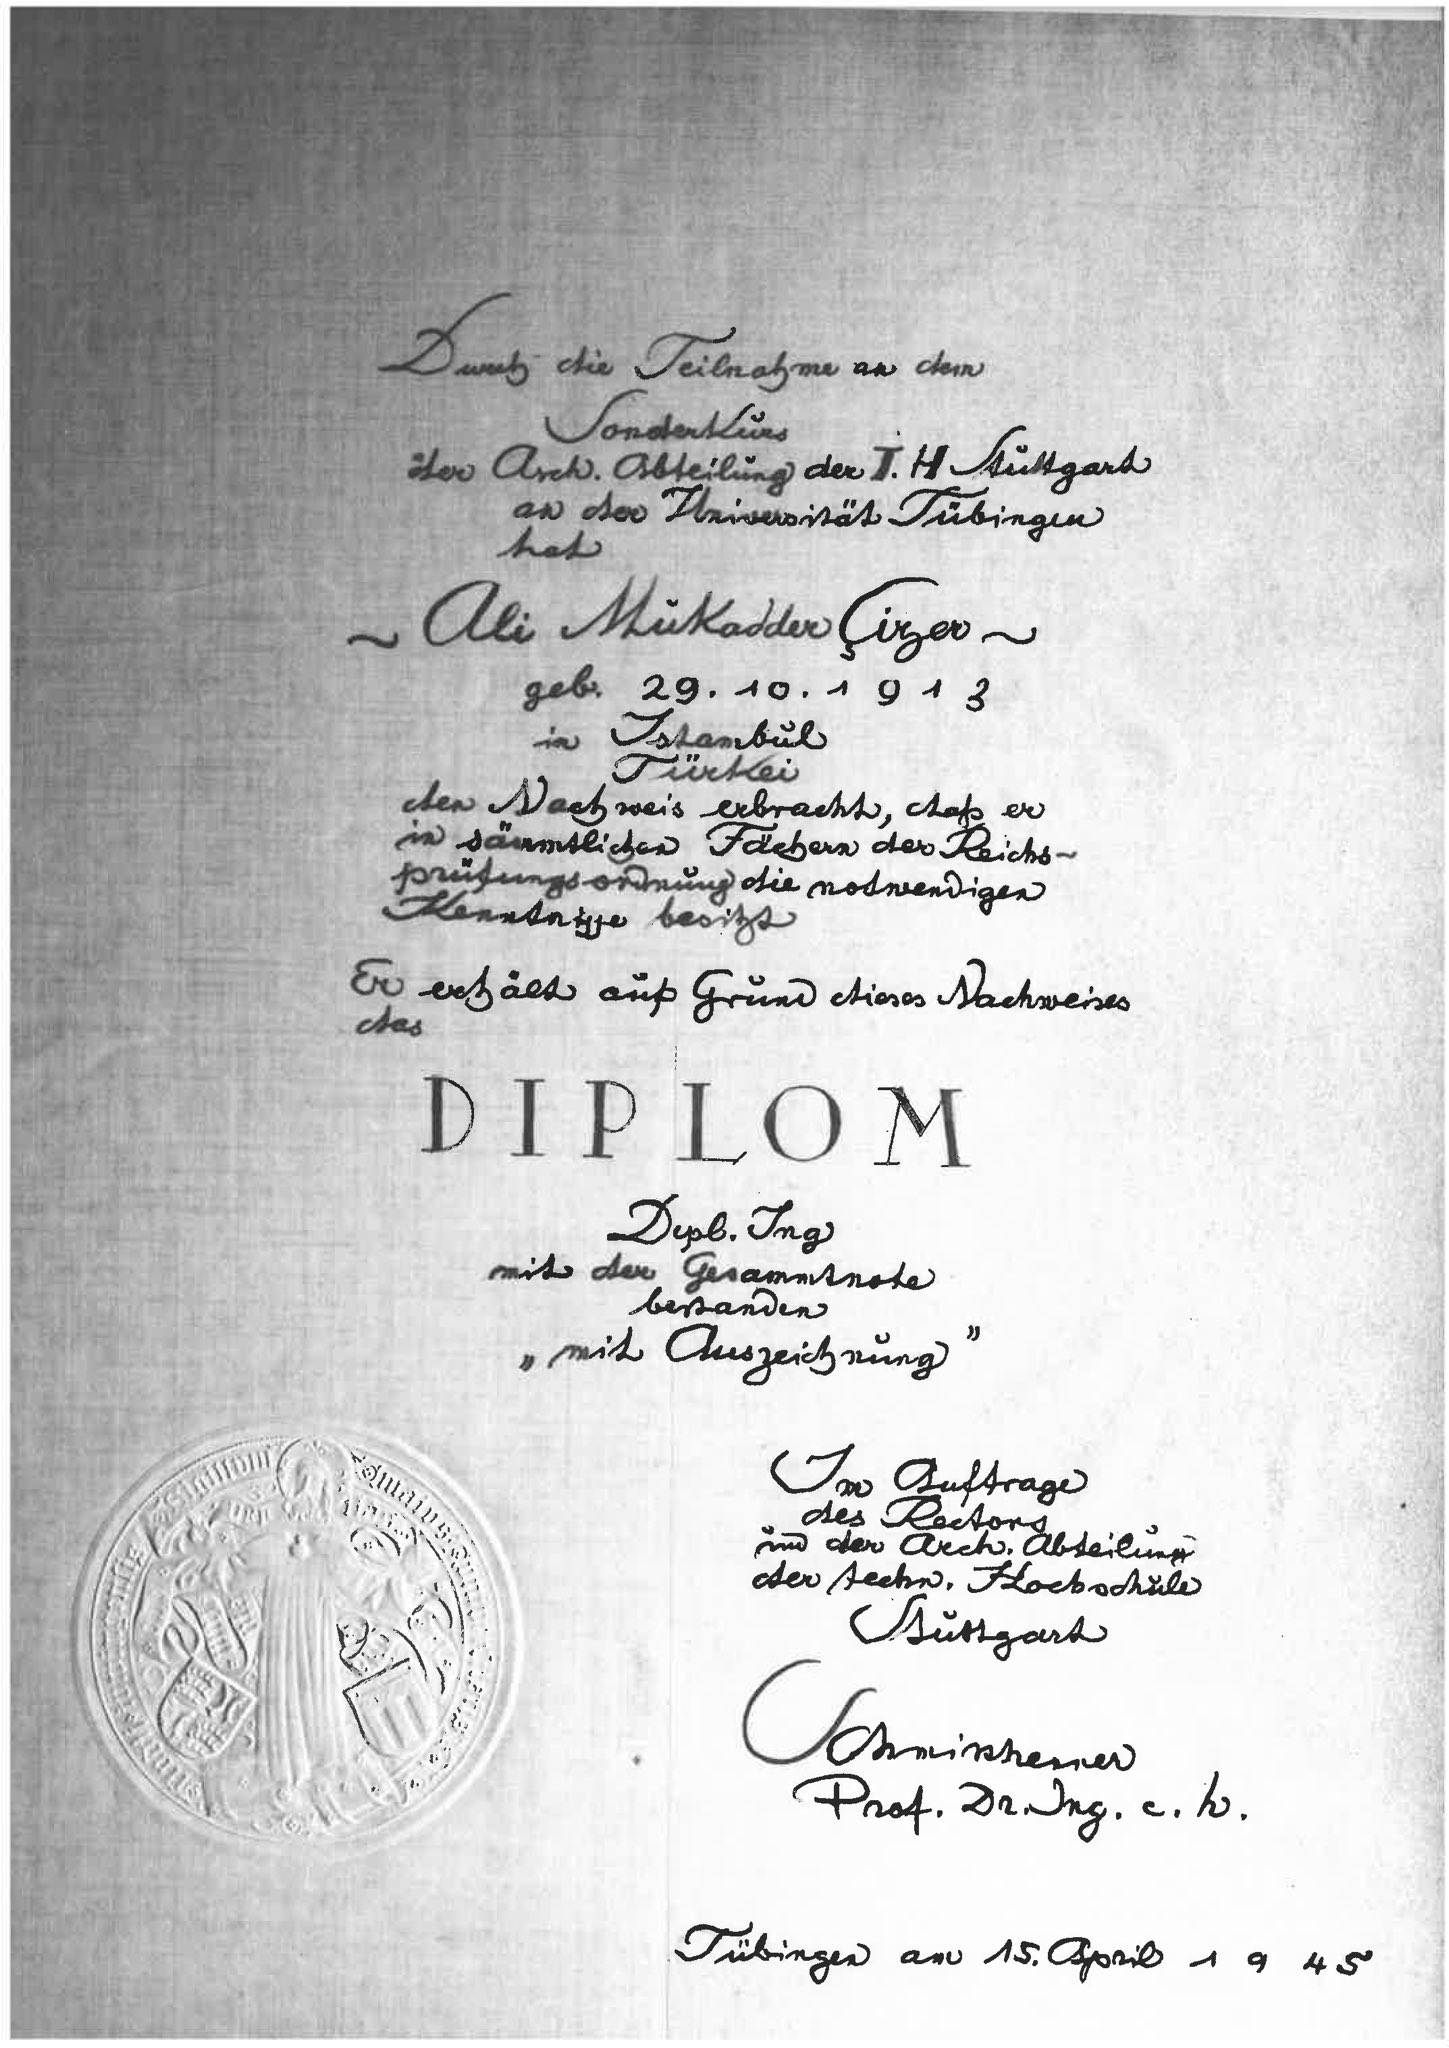 Durch die Teilnahme an dem
Sonderkurs
der Arch. Abteilung der T. H Stuttgart
an der Universität Tübingen
hat
~ Ali Mukadder Çizer ~
geb. 29. 10. 1 9 1 3
in Istambul
Türkei
den Nachweis erbracht, daß er
in sämmtlichen Fächern der Reichs-
prüfungsordnung die notwendigen
Kenntnisse besitzt
Er erhält auf Grund dieses Nachweises
das
DIPLOM
Dipl. Ing
mit der Gesammtnote
bestanden
„ mit Auszeichnung ”
Im Auftrage
des Rectors
und der Arch. Abteilung
der techn. Hochschule
Stuttgart
Schmitthenner
Prof. Dr. Ing. e. h.
Tübingen am 15. April 1 9 4 5